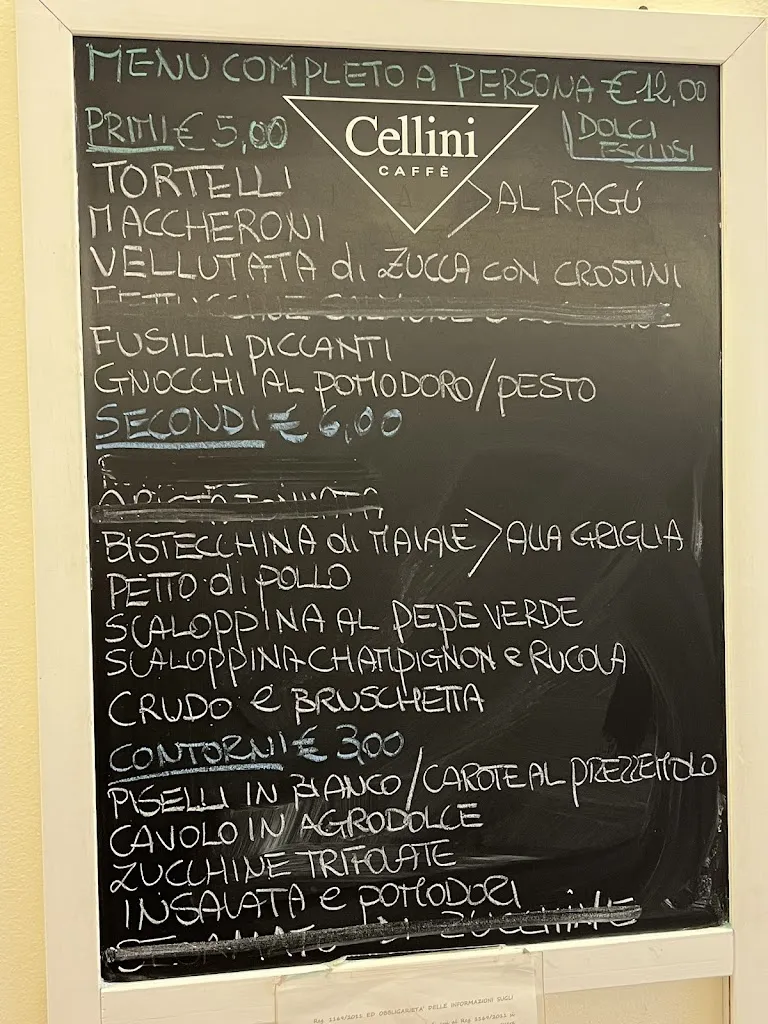 MENU COMPLETO A PERSONA € 12,00
PRIMI € 5,00
DOLCI
ESCLUSI
Cellini
CAFFÈ
TORTELLI
MACCHERONI
> AL RAGÚ
VELLUTATA di ZUCCA CON CROSTINI
FUSILLI PICCANTI
GNOCCHI AL POMODORO/PESTO
SECONDI € 6,00
BISTECCHINA di MAIALE > ALLA GRIGLIA
PETTO di POLLO
SCALOPPINA AL PEPE VERDE
SCALOPPINA CHAMPIGNON e RUCOLA
CRUDO e BRUSCHETTA
CONTORNI € 3,00
PISELLI IN BIANCO/CAROTE AL PREZZEMOLO
CAVOLO IN AGRODOLCE
ZUCCHINE TRIFOLATE
INSALATA e POMODORI
DI ZUCCHINE
Reg 1169/2011 ED OBBLIGARIETA' DELLE INFORMAZIONI SUGLI